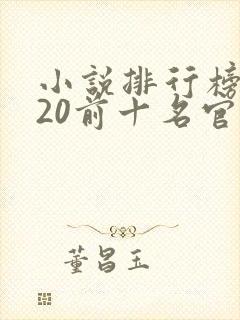 小説排行榜
20前十名官
董昌玉